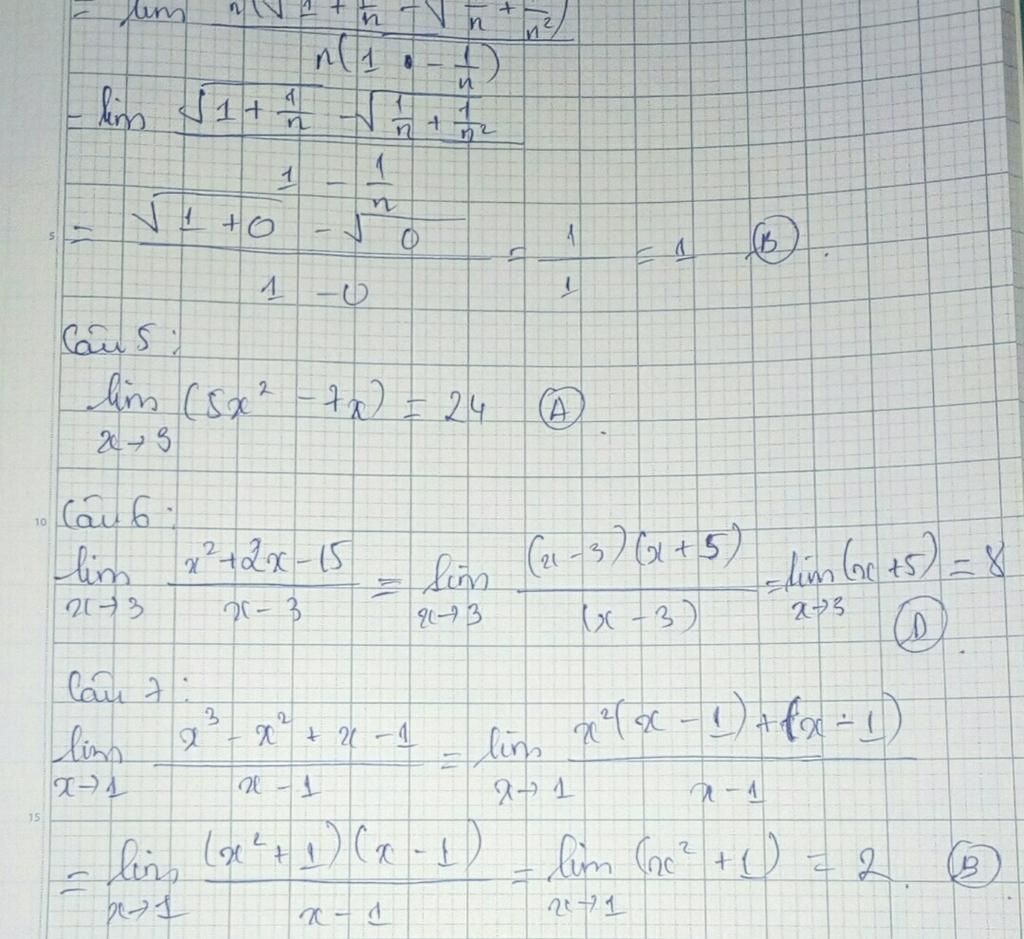 = lim n(√1 + 1/n - √1/n + 1/n²) / n(1 - 1/n)
= lim √1 + 1/n - √1/n + 1/n² / 1 - 1/n
5 = √1 + 0 - √0 / 1 - 0 = 1/1 = 1 (B).
Câu 5 :
lim x→3 (5x² - 7x) = 24 (A).
10 Câu 6 :
lim x→3 x² + 2x - 15 / x - 3 = lim x→3 (x - 3)(x + 5) / (x - 3) = lim x→3 (x + 5) = 8
(D).
Câu 7 :
lim x→1 x³ - x² + x - 1 / x - 1 = lim x→1 x²(x - 1) + (x - 1) / x - 1
15 = lim x→1 (x² + 1)(x - 1) / x - 1 = lim x→1 (x² + 1) = 2. (B)